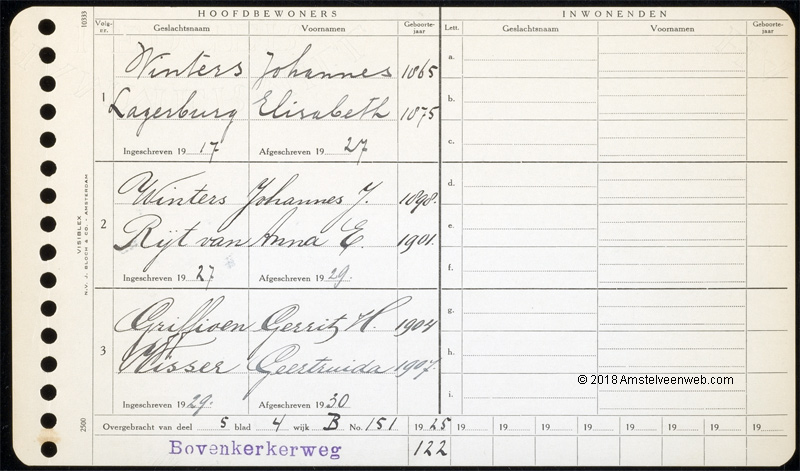 HOOFDBEWONERS INWONENDEN
Volg-nr. Geslachtsnaam Voornamen Geboorte-jaar Lett. Geslachtsnaam Voornamen Geboorte-jaar
Winters Johannes 1865 a.
1 Lagerburg Elisabeth 1875 b.
Ingeschreven 1917 Afgeschreven 1927 c.
Winters Johannes J. 1898. d.
2 Rijt van Anna E. 1901. e.
Ingeschreven 1927 Afgeschreven 1929. f.
Griffioen Gerrit H. 1904 g.
3 Visser Geertruida 1907. h.
Ingeschreven 1929. Afgeschreven 1930 i.
© 2018 Amstelveenweb.com
Overgebracht van deel 5 blad 4 wijk B No. 151 1925 19 19 19 19 19 19 19 19
Bovenkerkerweg 122
10333
VISIBLEX
N.V. J. BLOCH & CO. - AMSTERDAM
2500